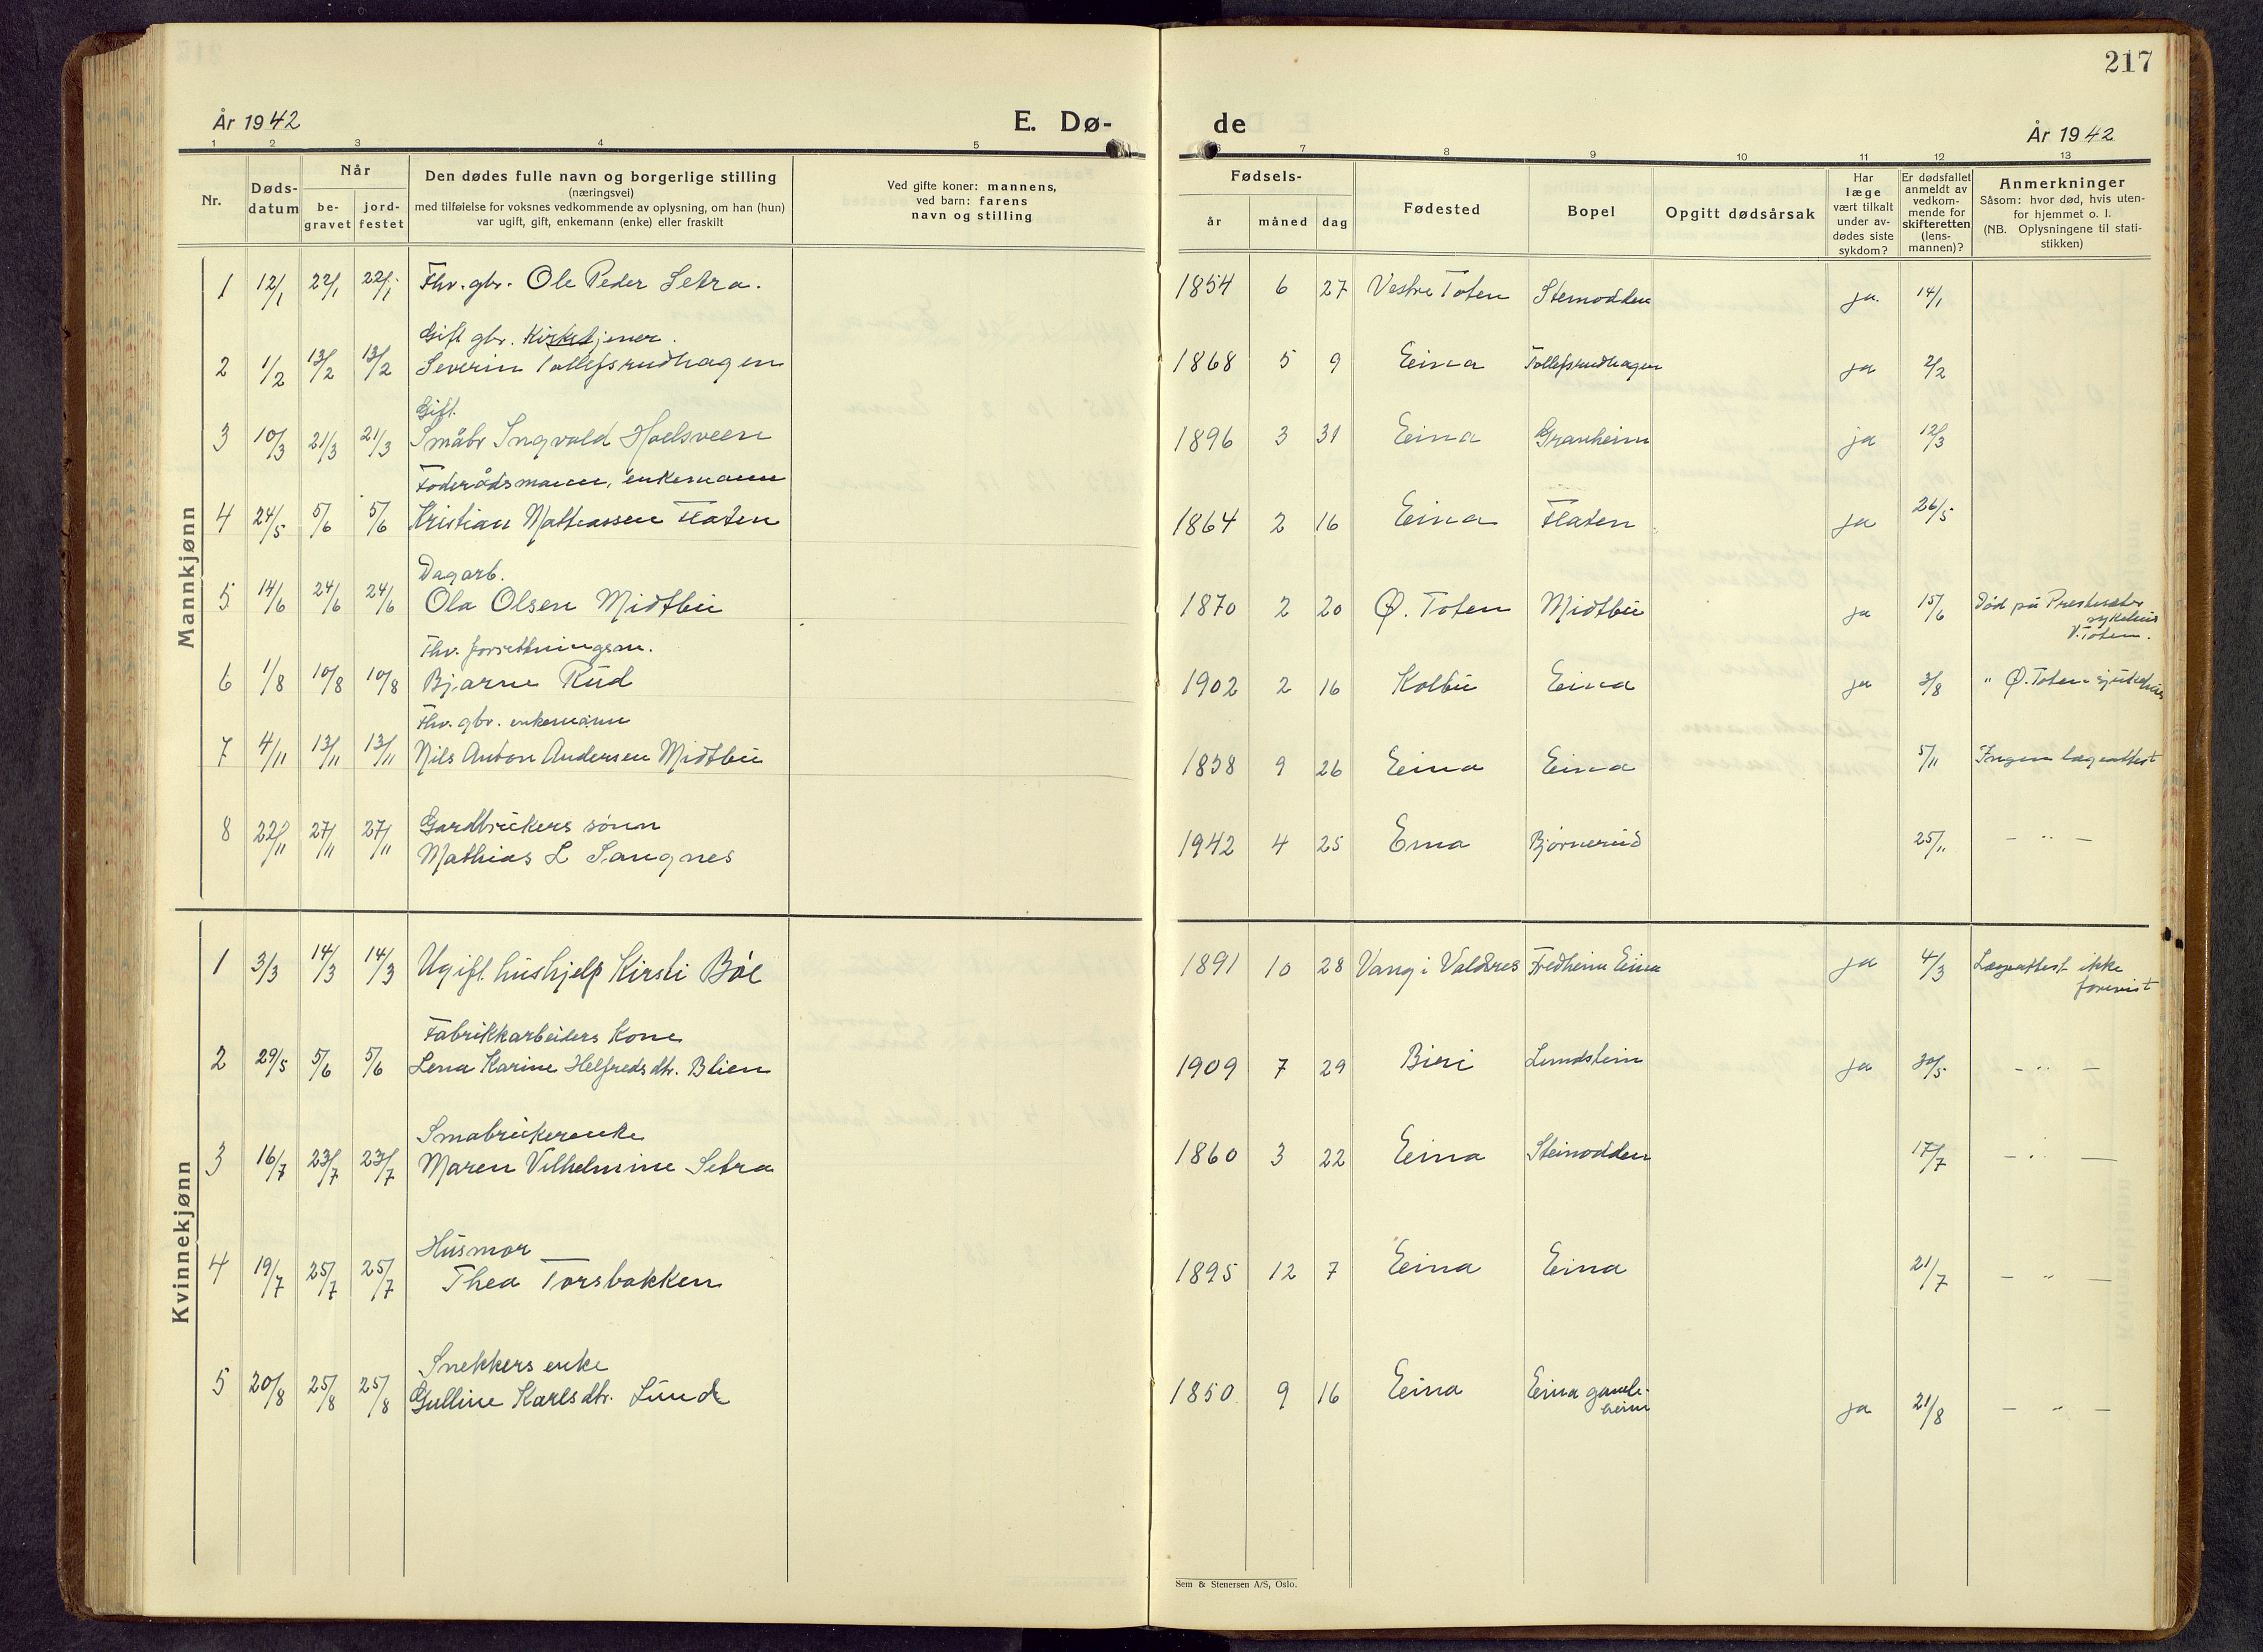 217
År 1942
E. Dø-
de
År 1942
1 2 3 4 5
6 7 8 9 10 11 12 13
Nr.
Døds-
datum
Når
be-
gravet
jord-
festet
Den dødes fulle navn og borgerlige stilling
(næringsvei)
med tilføielse for voksnes vedkommende av oplysning, om han (hun)
var ugift, gift, enkemann (enke) eller fraskilt
Ved gifte koner: mannens,
ved barn: farens
navn og stilling
Fødsels-
år måned dag
Fødested
Bopel
Opgitt dødsårsak
Har
læge
vært tilkalt
under av-
dødes siste
sykdom?
Er dødsfallet
anmeldt av
vedkom-
mende for
skifteretten
(lens-
mannen)?
Anmerkninger
Såsom: hvor død, hvis uten-
for hjemmet o. l.
(NB. Oplysningene til stati-
stikken)
Mannkjønn
1 12/1 22/1 22/1 Fhv. gbr. Ole Peder Setra. 1854 6 27 Vestre Toten Steinodden ja. 14/1
Gift gbr. Kirketjener.
2 1/2 13/2 13/2 Severin Tollefsrudhagen 1868 5 9 Eina Tollefsrudhagen ja 2/2
Gift.
3 10/3 21/3 21/3 Småbr Ingvald Hoelsveen 1896 3 31 Eina Granheim ja 12/3
Foderådsmann, enkemann
4 24/5 5/6 5/6 Kristian Mathiassen Flaten 1864 2 16 Eina Flaten ja 26/5
Dagarb.
5 14/6 24/6 24/6 Ola Olsen Midtbu 1870 2 20 Ø. Toten Midtbu ja 15/6 Død på Presteseter
sykehus
V. Toten.
Fhv. forretningsm.
6 1/8 10/8 10/8 Bjarne Rud 1902 2 16 Kolbu Eina ja 3/8 " Ø. Toten sjukehus
Fhv. gbr. enkemann
7 4/11 13/11 13/11 Nils Anton Andersen Midtbu 1858 9 26 Eina Eina 5/11 Ingen lægeattest
8 22/11 27/11 27/11 Gardbrukers sønn
Mathias L Sangnes 1942 4 25 Eina Bjørnerud 25/11 — " —
Kvinnekjønn
1 3/3 14/3 14/3 Ugift hushjelp Kirsti Bøe 1891 10 28 Vang i Valdres Fredheim Eina ja 4/3 Lægeattest ikke
forevist
Fabrikkarbeiders Kone
2 29/5 5/6 5/6 Lena Karine Helfredsdtr. Blien 1909 7 29 Biri Lundstein ja 30/5 — " —
Småbrukerenke
3 16/7 23/7 23/7 Maren Vilhelmine Setra 1860 3 22 Eina Steinodden 17/7 — " —
Husmor
4 19/7 25/7 25/7 Thea Torsbakken 1895 12 7 Eina Eina 21/7 — " —
Snekkers enke
5 20/8 25/8 25/8 Gulline Karlsdtr. Lund 1850 9 16 Eina Eina gamle-
heim ja 21/8 — " —
Sem & Stenersen A/S, Oslo.